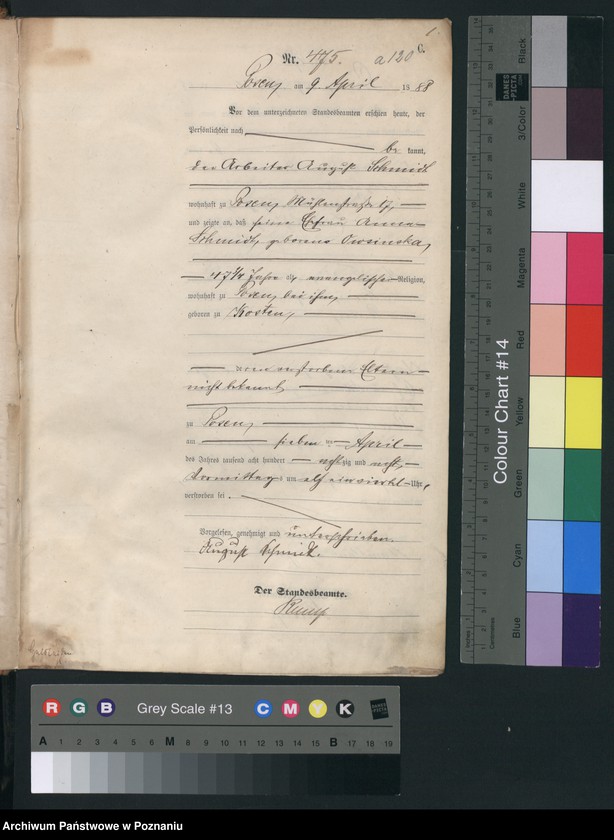 1
C.
Nr. 475. a120
Posen, am 9 April 1888
Vor dem unterzeichneten Standesbeamten erschien heute, der
Persönlichkeit nach
be kannt,
der Arbeiter August Schmidt
wohnhaft zu Posen, Mühlenstraße
und zeigte an, daß seine Ehefrau Anna
Schmidt, geborene Owsinska,
47¾ Jahre alt, evangelischer Religion,
wohnhaft zu Posen, bei ihm,
geboren zu Kosten,
verstorbener Eltern
nicht bekannt,
zu Posen,
am sieben ten April
des Jahres tausend acht hundert achtzig und acht,
Vormittags um elf einviertel Uhr,
verstorben sei.
Vorgelesen, genehmigt und unterschrieben.
August Schmidt.
Der Standesbeamte.
Colour Chart #14
Blue
Cyan
Green
Yellow
Red
Magenta
White
3/Color
Black
DANES
PICTA
Inches
Centimetres
R G B Grey Scale #13 C M Y K DANES PICTA
A 1 2 3 4 5 6 M 8 9 10 11 12 13 14 15 B 17 18 19
Archiwum Państwowe w Poznaniu